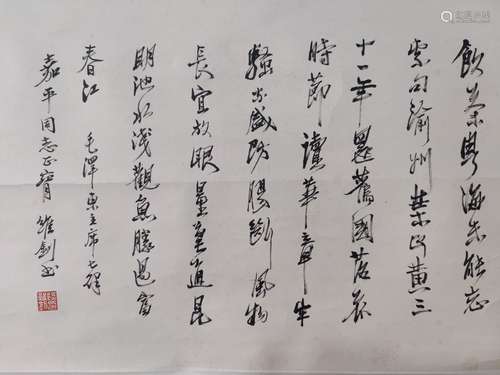 飲茶粵海未能忘
索句渝州葉正黃三
十一年還舊國落花
時節讀華章牢
騷太盛防腸斷風物
長宜放眼量莫道昆
明池水淺觀魚勝過富
春江
毛澤東主席七律
嘉平同志正腕
維剑书